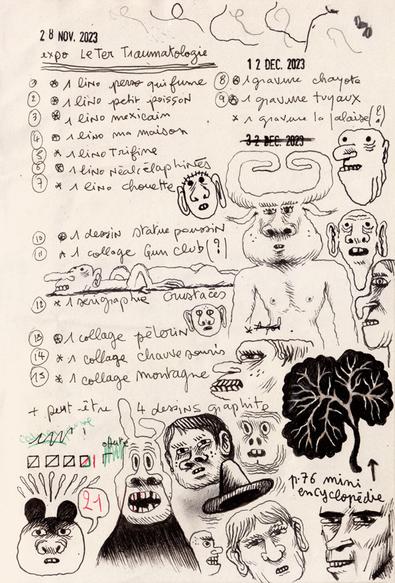 28 NOV. 2023
expo Le Ter Traumatologie
1 * 1 lino perso qui fume
2 * 1 lino petit poisson
3 * 1 lino mexicain
4 * 1 lino ma maison
5 * 1 lino Trifine
6 * 1 lino
7 * 1 lino chouette
12 DEC. 2023
8 * 1 gravure chayote
9 * 1 gravure tuyaux
* 1 gravure la falaise (?)
32 DEC. 2023
10 * 1 dessin statue poussin
11 * 1 collage Gun club (?)
12 * 1 sérigraphie crustacés
13 * 1 collage pèlerin
14 * 1 collage chauve souris
15 * 1 collage montagne
+ peut-être 4 dessins graphite
21
p.76 mini
encyclopédie